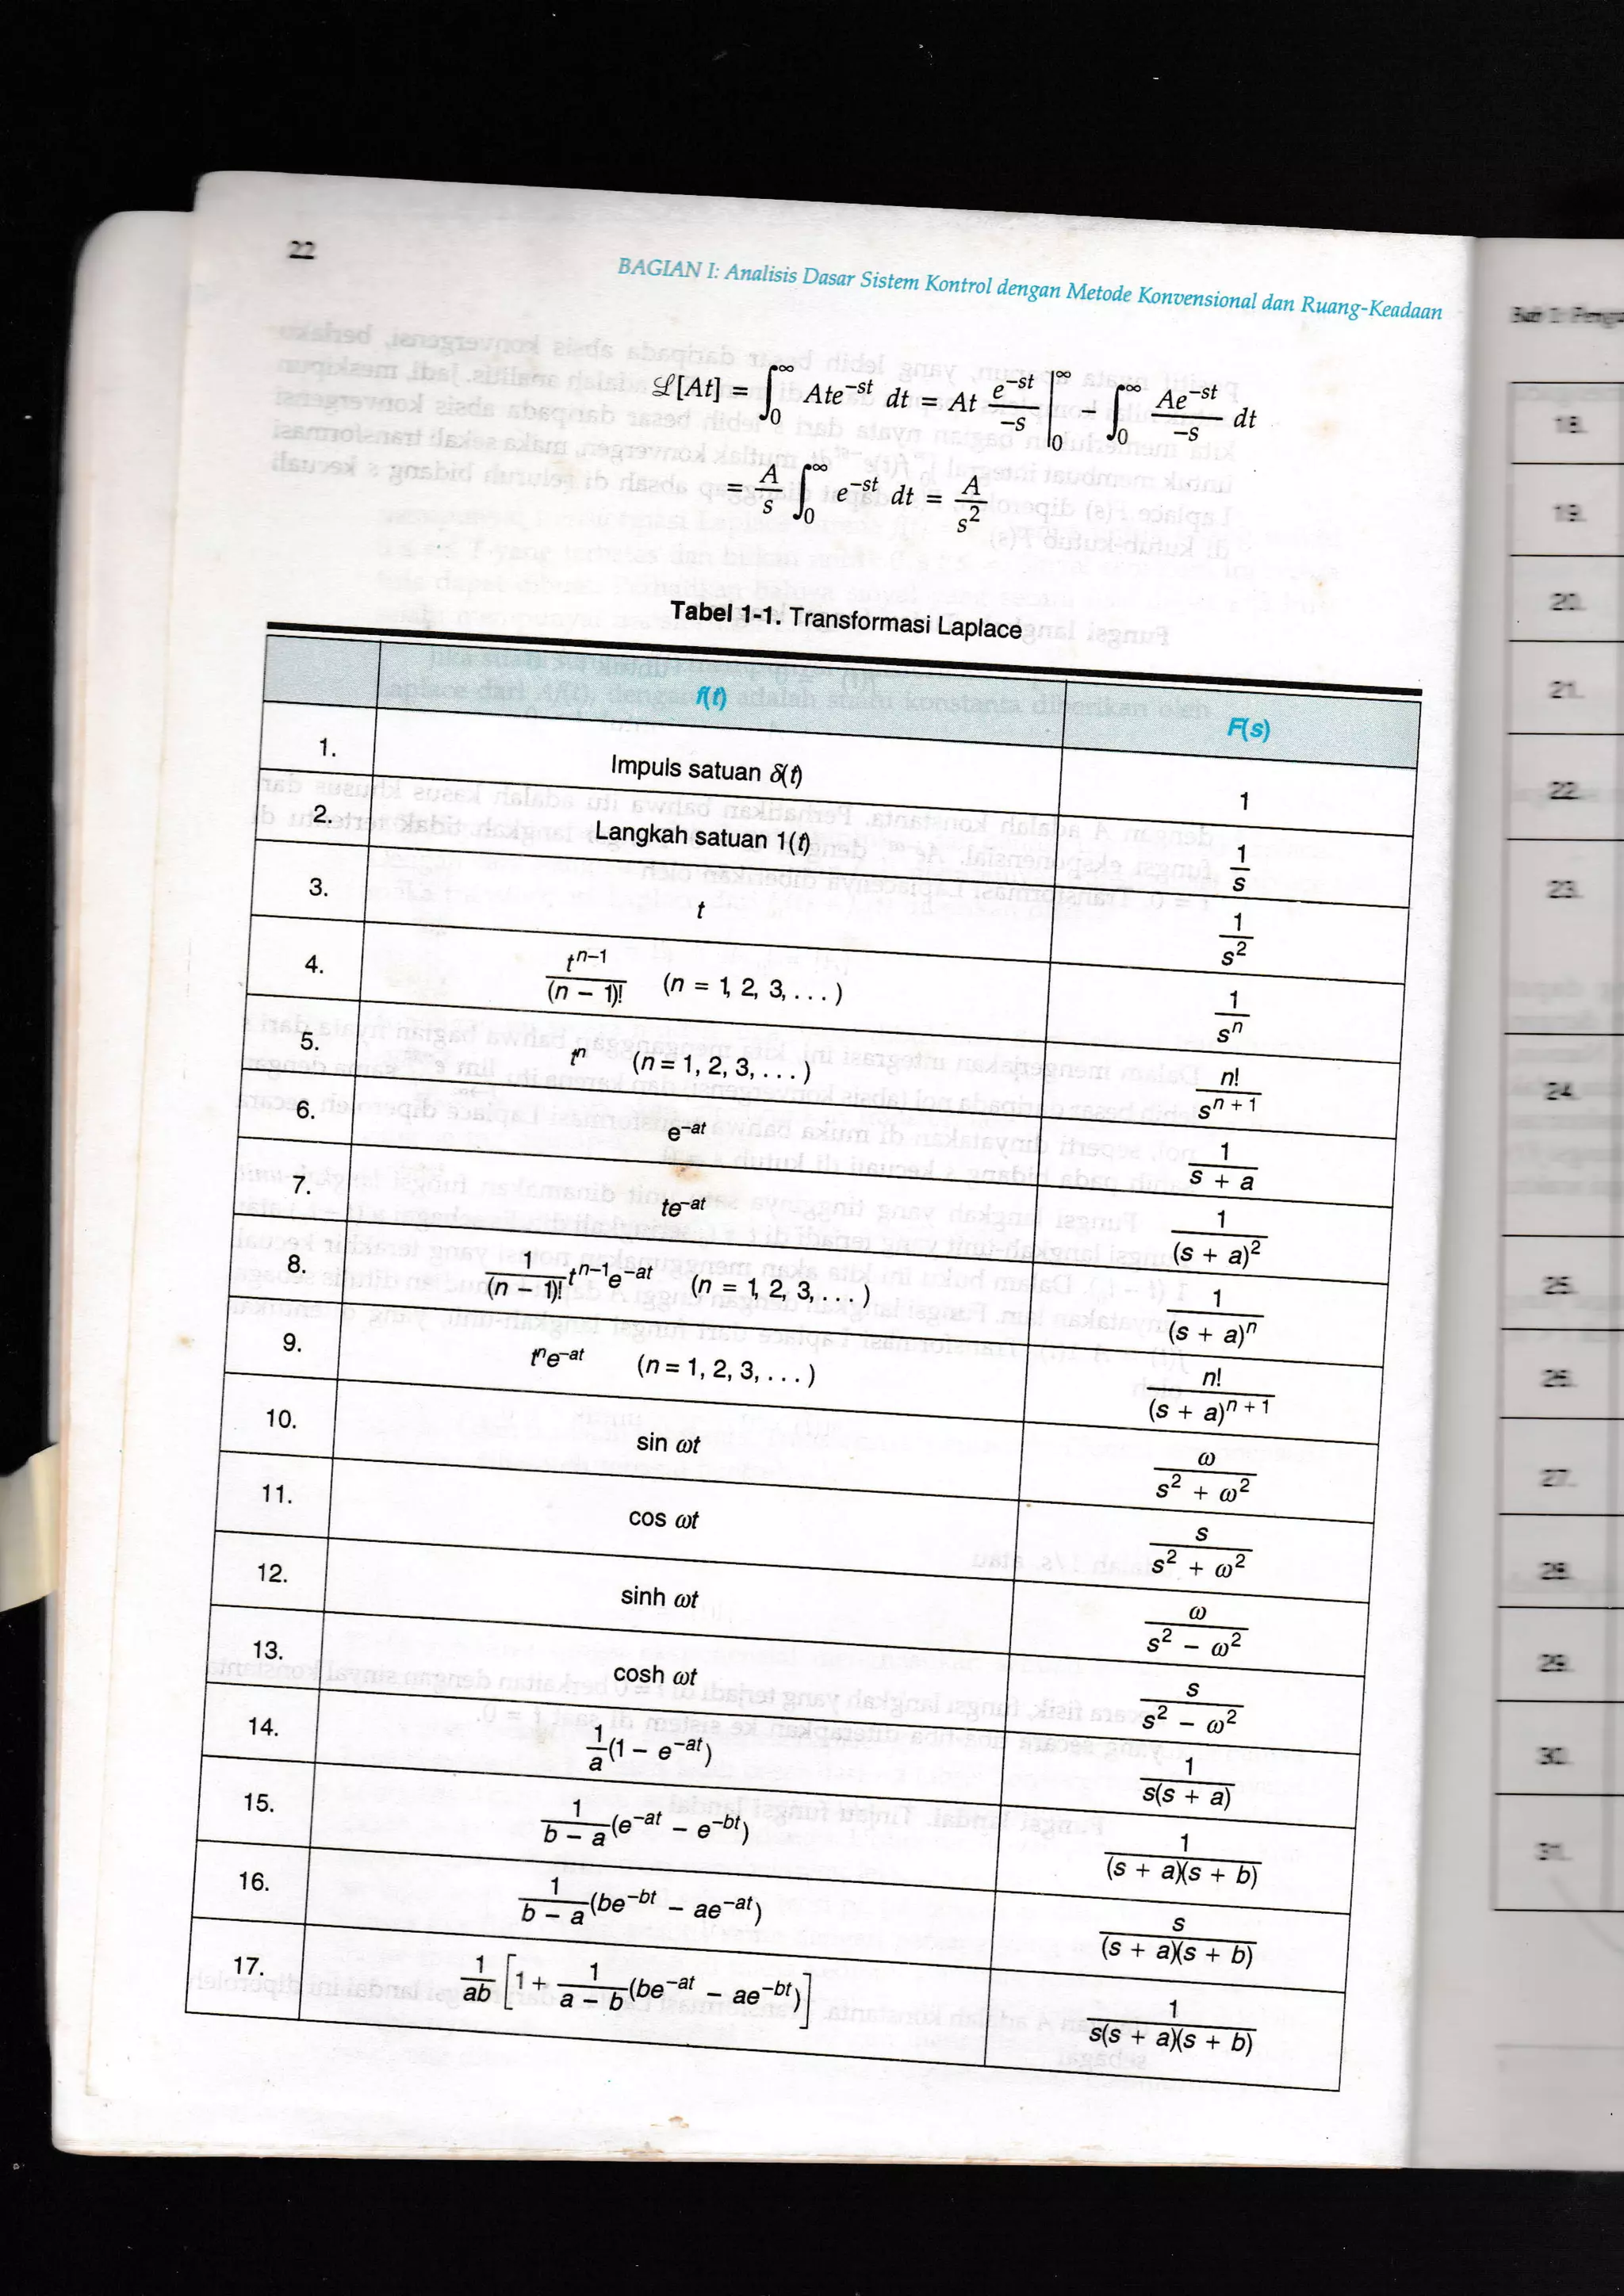 22
BAGIAN I: Analisis Dasar Sistem Kontrol dengan Metode Konvensional dan Ruang-Keadaan
ℒ[At] = ∫₀^∞ Ate^{–st} dt = At e^{–st}/–s |₀^∞ – ∫₀^∞ Ae^{–st}/–s dt
= A/s ∫₀^∞ e^{–st} dt = A/s²
Tabel 1-1. Transformasi Laplace
f(t) F(s)
1. Impuls satuan δ(t) 1
2. Langkah satuan 1(t) 1/s
3. t 1/s²
4. t^{n–1}/(n – 1)! (n = 1, 2, 3, . . . ) 1/sⁿ
5. tⁿ (n = 1, 2, 3, . . . ) n!/s^{n + 1}
6. e^{–at} 1/(s + a)
7. te^{–at} 1/(s + a)²
8. 1/(n – 1)! t^{n–1}e^{–at} (n = 1, 2, 3, . . . ) 1/(s + a)ⁿ
9. tⁿe^{–at} (n = 1, 2, 3, . . . ) n!/(s + a)^{n + 1}
10. sin ωt ω/(s² + ω²)
11. cos ωt s/(s² + ω²)
12. sinh ωt ω/(s² – ω²)
13. cosh ωt s/(s² – ω²)
14. 1/a (1 – e^{–at}) 1/(s(s + a))
15. 1/(b – a) (e^{–at} – e^{–bt}) 1/((s + a)(s + b))
16. 1/(b – a) (be^{–bt} – ae^{–at}) s/((s + a)(s + b))
17. 1/ab [1 + 1/(a – b) (be^{–at} – ae^{–bt})] 1/(s(s + a)(s + b))
18.
19.
20.
21.
22.
23.
24.
25.
26.
27.
28.
29.
30.
31.